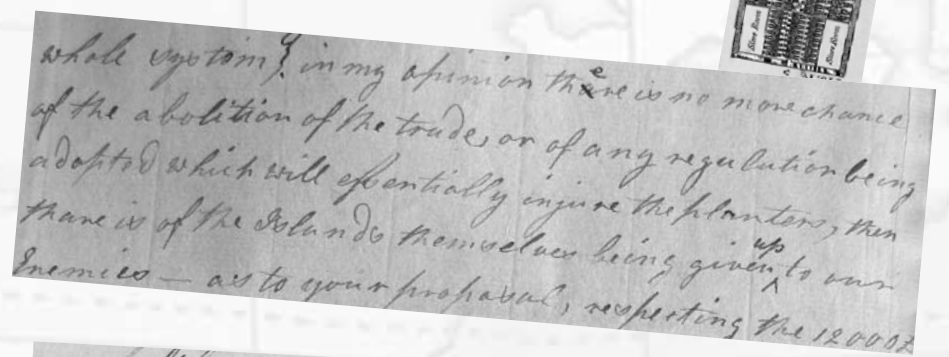 Store Room
Store Room
whole system; in my opinion there is no more chance
of the abolition of the trade, or of any regulation being
adopted which will essentially injure the planters, then
thare is of the Islands themselves being given up to our
Enemies — as to your proposal, respecting the 12000£